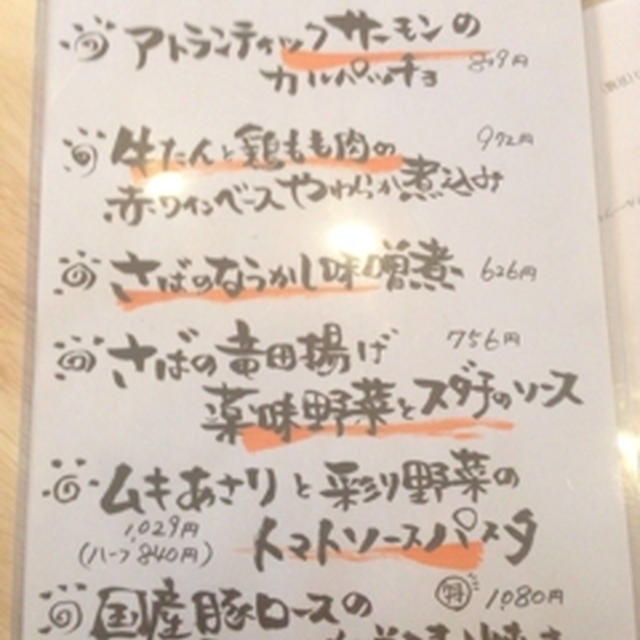 アトランティックサーモンの
カルパッチョ 869円
牛たんと鶏もも肉の 972円
赤ワインベースやわらか煮込み
さばのなつかし味噌煮 626円
さばの竜田揚げ 756円
薬味野菜とスダチのソース
ムキあさりと彩り野菜の
1,029円 トマトソースパスタ
(ハーフ840円)
国産豚ロースの 1,080円